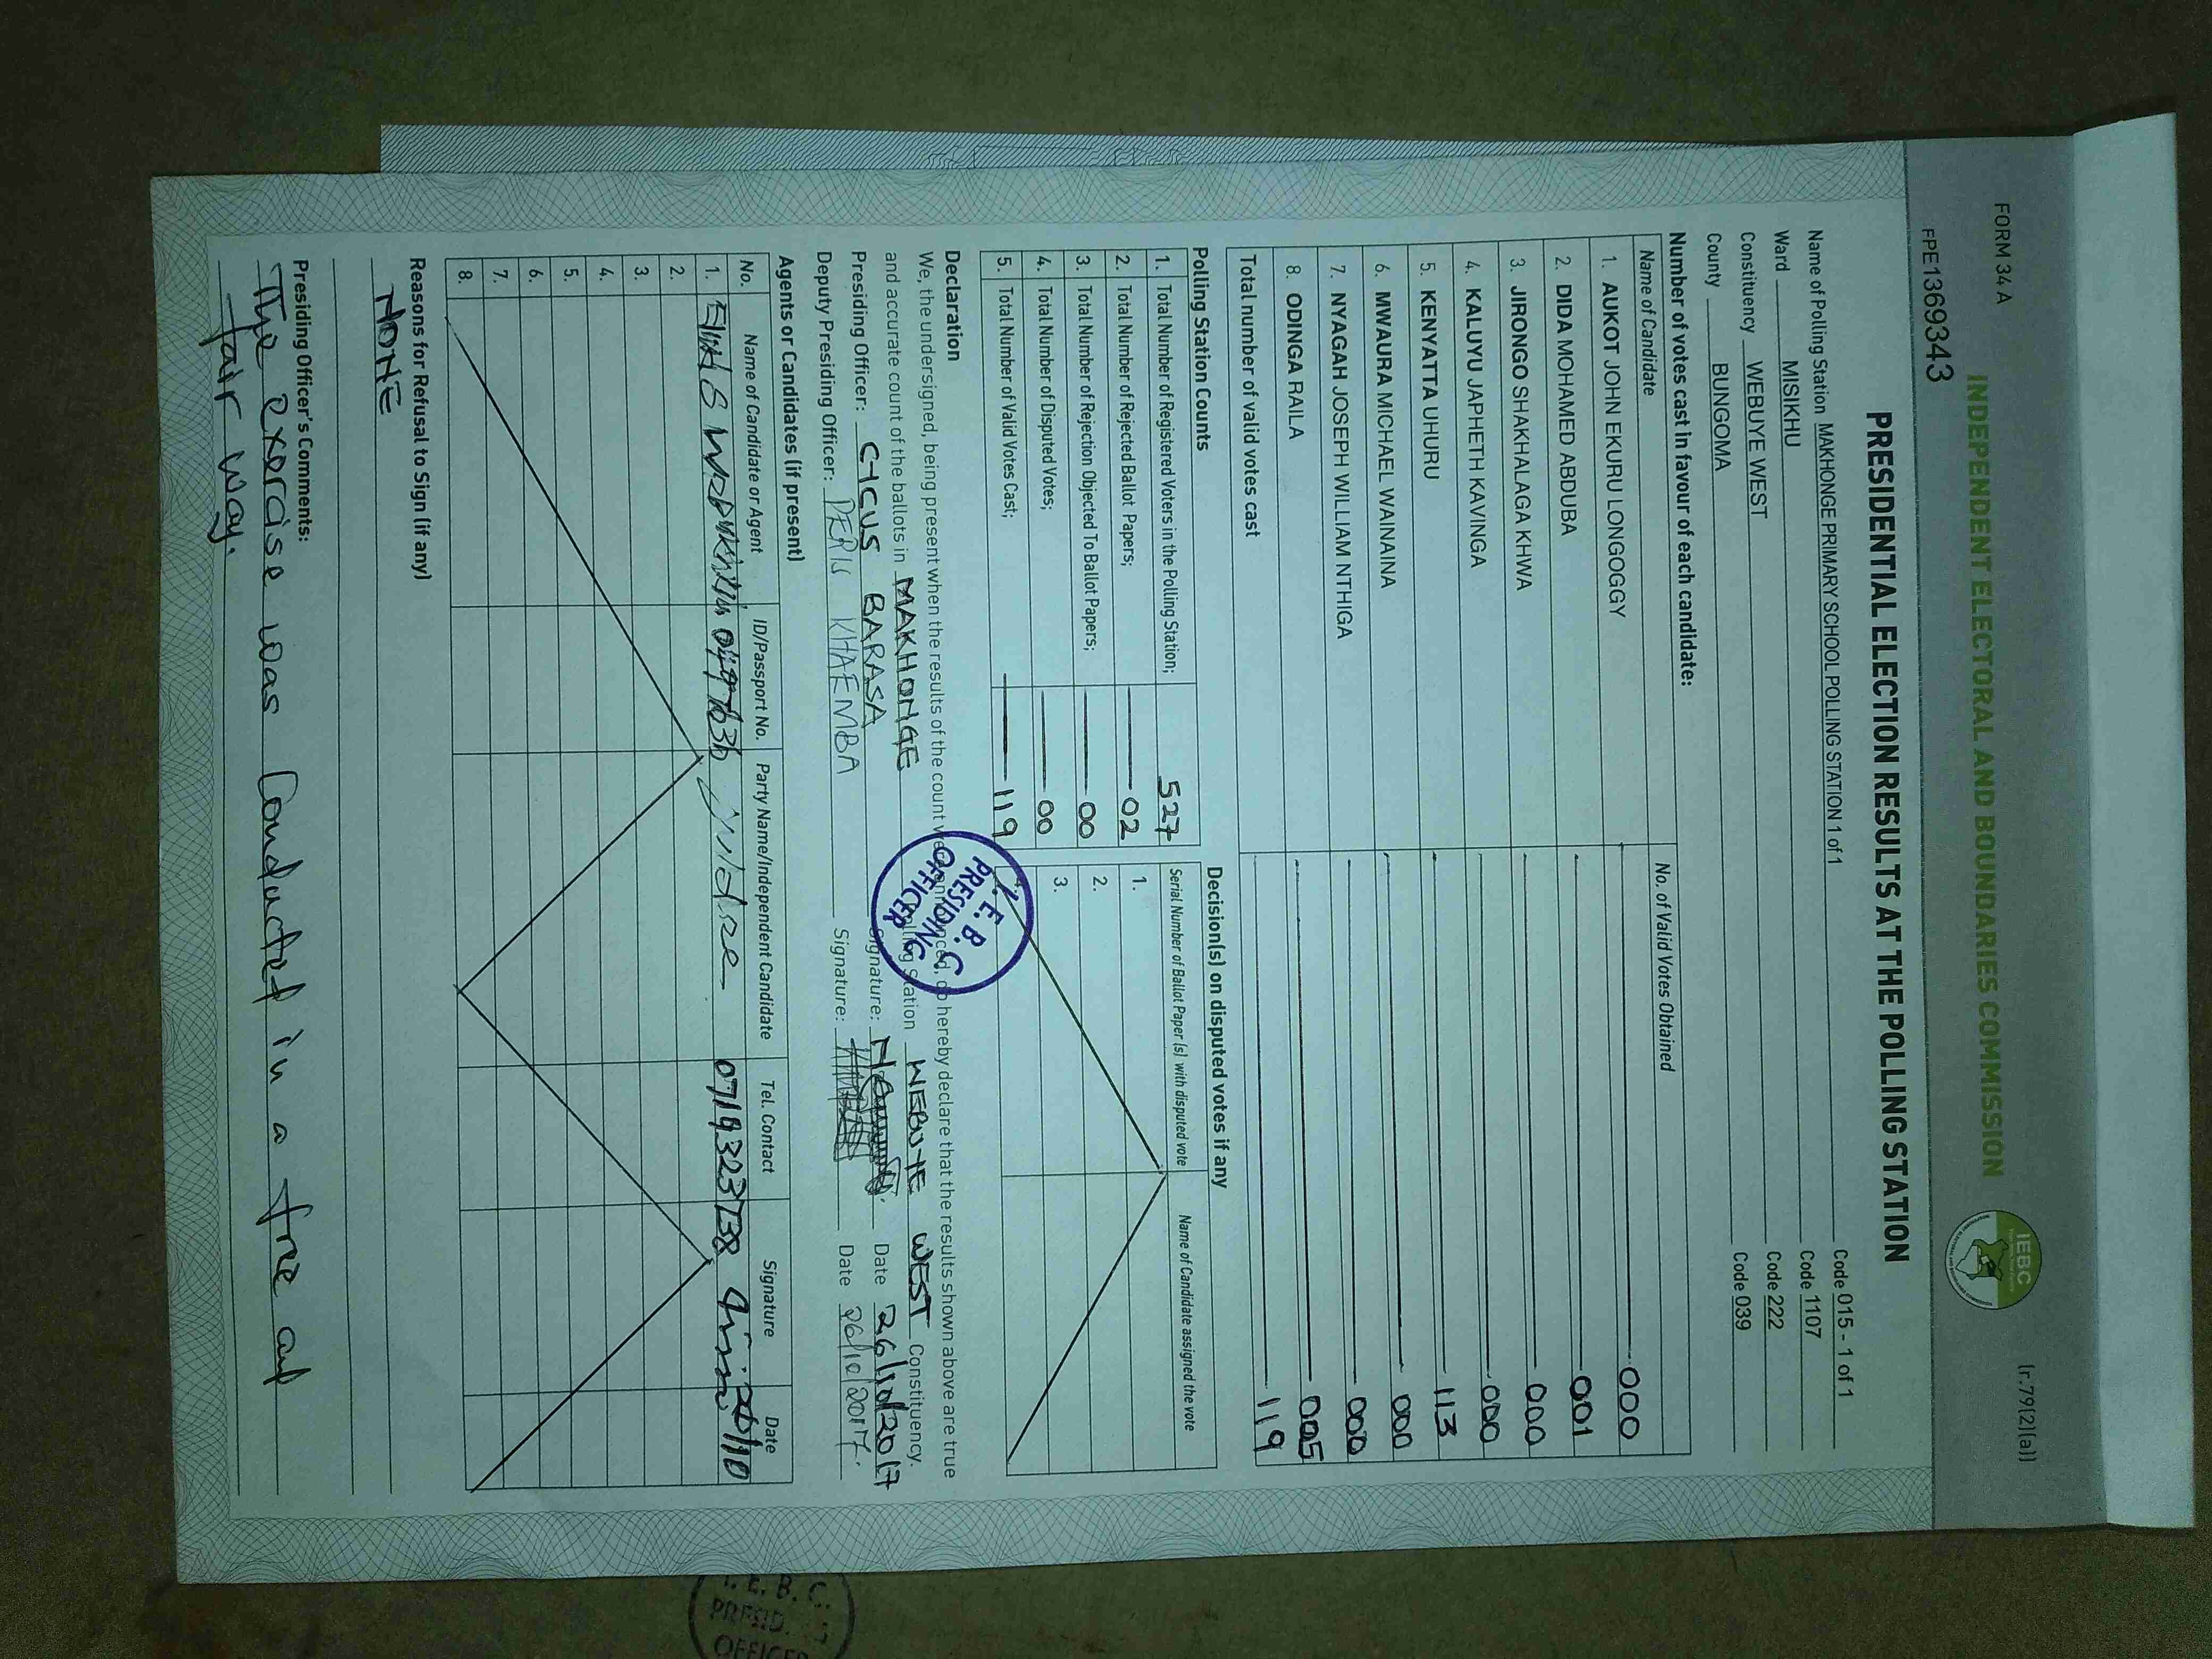 FORM 34 A
(r.79(2)(a))
INDEPENDENT ELECTORAL AND BOUNDARIES COMMISSION
IEBC
FPE1369343
PRESIDENTIAL ELECTION RESULTS AT THE POLLING STATION
Name of Polling Station MAKHONGE PRIMARY SCHOOL POLLING STATION 1 of 1 Code 015 - 1 of 1
Ward MISIKHU Code 1107
Constituency WEBUYE WEST Code 222
County BUNGOMA Code 039
Number of votes cast in favour of each candidate:
Name of Candidate No. of Valid Votes Obtained
1. AUKOT JOHN EKURU LONGOGGY 000
2. DIDA MOHAMED ABDUBA 001
3. JIRONGO SHAKHALAGA KHWA 000
4. KALUYU JAPHETH KAVINGA 000
5. KENYATTA UHURU 113
6. MWAURA MICHAEL WAINAINA 000
7. NYAGAH JOSEPH WILLIAM NTHIGA 000
8. ODINGA RAILA 005
Total number of valid votes cast 119
Polling Station Counts
1. Total Number of Registered Voters in the Polling Station; 527
2. Total Number of Rejected Ballot Papers; 02
3. Total Number of Rejection Objected To Ballot Papers; 00
4. Total Number of Disputed Votes; 00
5. Total Number of Valid Votes Cast; 119
Decision(s) on disputed votes if any
Serial Number of Ballot Paper (s) with disputed vote Name of Candidate assigned the vote
1.
2.
3.
4.
Declaration
We, the undersigned, being present when the results of the count were announced, do hereby declare that the results shown above are true
and accurate count of the ballots in MAKHONGE Polling Station WEBUYE WEST Constituency.
Presiding Officer: CYCUS BARASA Signature: Date 26/10/2017
Deputy Presiding Officer: PERIS KHAEMBA Signature: Date 26/10/2017.
I. E. B. C
PRESIDING
OFFICER
Agents or Candidates (if present)
No. Name of Candidate or Agent ID/Passport No. Party Name/Independent Candidate Tel. Contact Signature Date
1. 0719323738 26/10
2.
3.
4.
5.
6.
7.
8.
Reasons for Refusal to Sign (if any)
NONE
Presiding Officer's Comments:
The exercise was Conducted in a free and
fair way.
I. E. B. C.
OFFICER